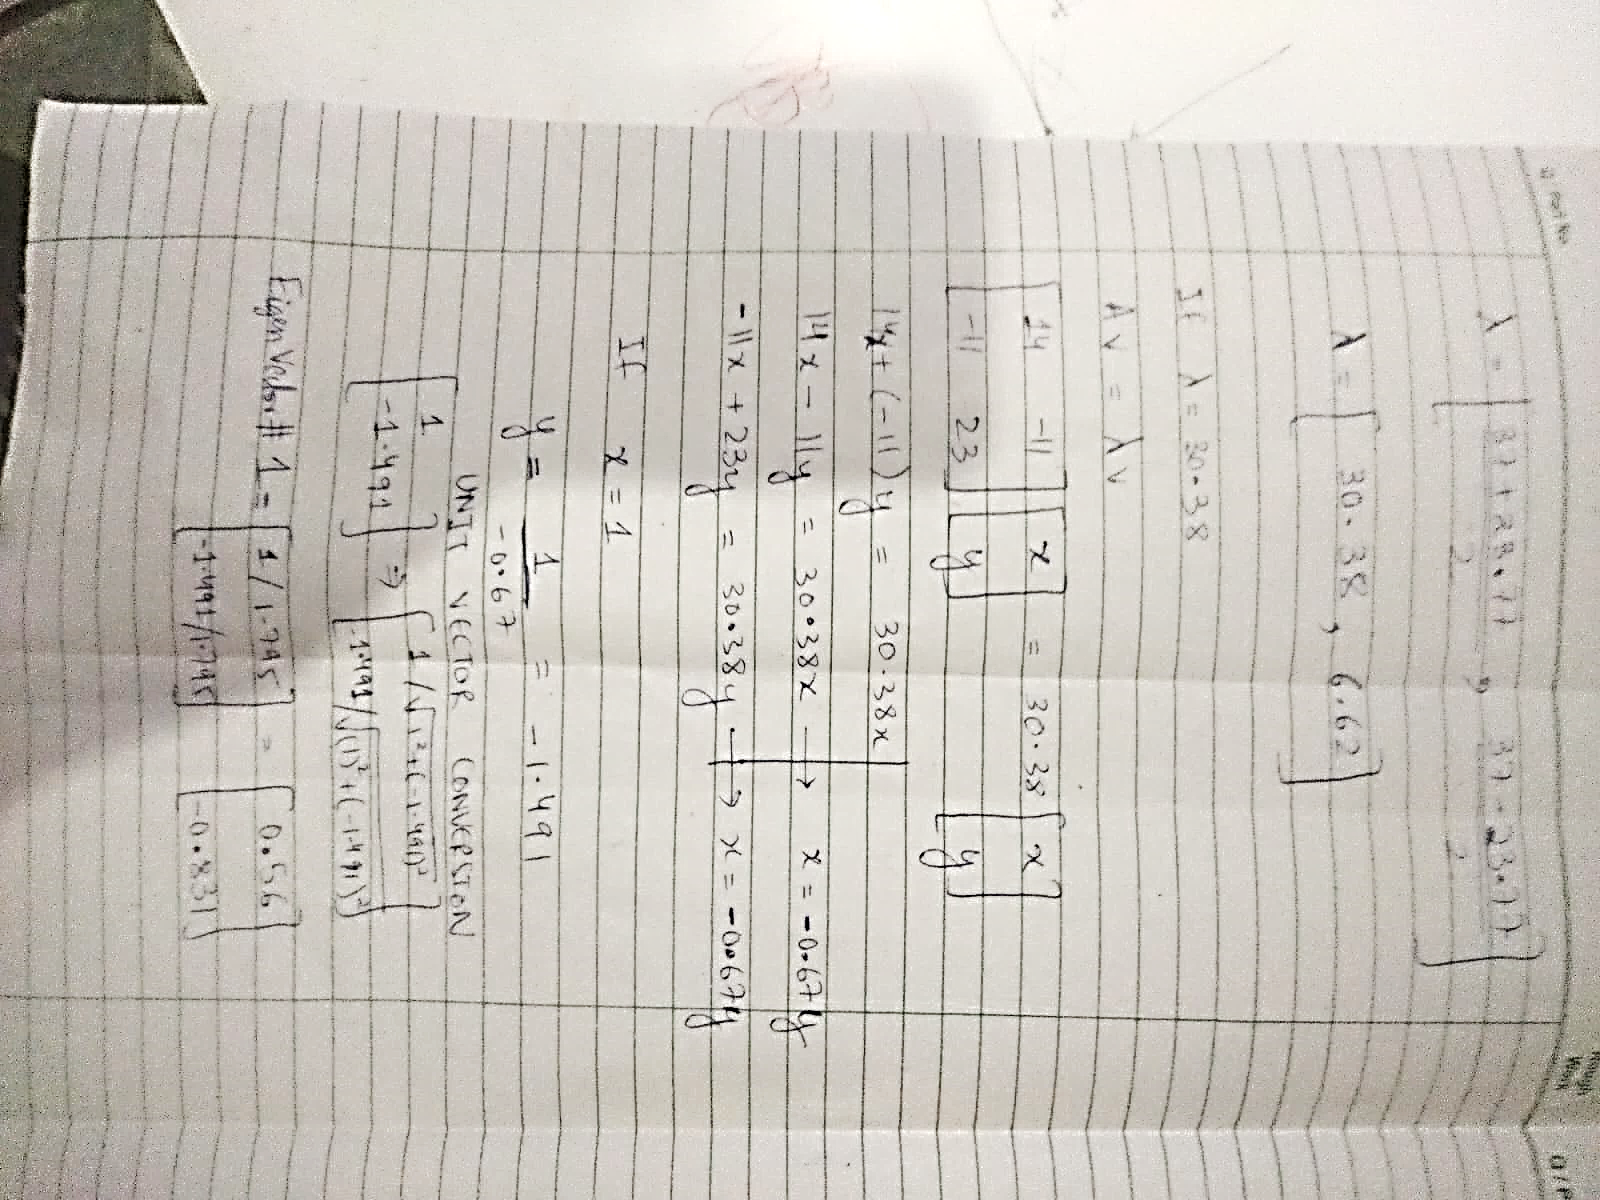 λ = [ 37+23.77 / 2 , 37-23.77 / 2 ]
λ = [ 30.38 , 6.62 ]
If λ = 30.38
Av = λv
[ 14 -11 ] [ x ] = 30.38 [ x ]
[ -11 23 ] [ y ] [ y ]
14x + (-11)y = 30.38x
14x - 11y = 30.38x → x = -0.671y
-11x + 23y = 30.38y → x = -0.671y
If x = 1
y = 1 / -0.67 = -1.491
UNIT VECTOR CONVERSION
[ 1 ] ⇒ [ 1/√1²+(-1.491)² ]
[ -1.491 ] [ -1.491/√(1)²+(-1.491)² ]
Eigen Vector # 1 = [ 1/1.795 ] = [ 0.556 ]
[ -1.491/1.795 ] [ -0.831 ]